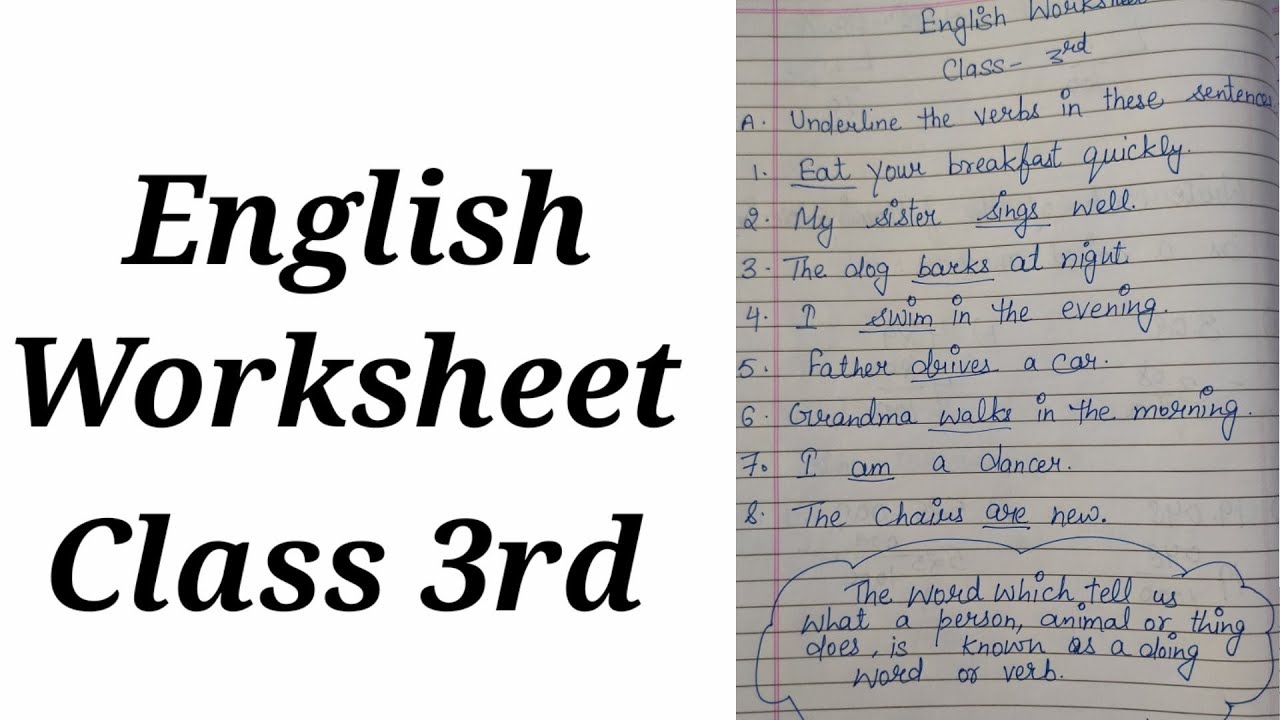 English
Worksheet
Class 3rd
English Worksheet
Class- 3rd
A. Underline the verbs in these sentences
1. Eat your breakfast quickly.
2. My sister sings well.
3. The dog barks at night
4. I swim in the evening.
5. Father drives a car.
6. Grandma walks in the morning.
7. I am a dancer.
8. The chairs are new.
The word which tell us
what a person, animal or thing
does, is known as a doing
word or verb.